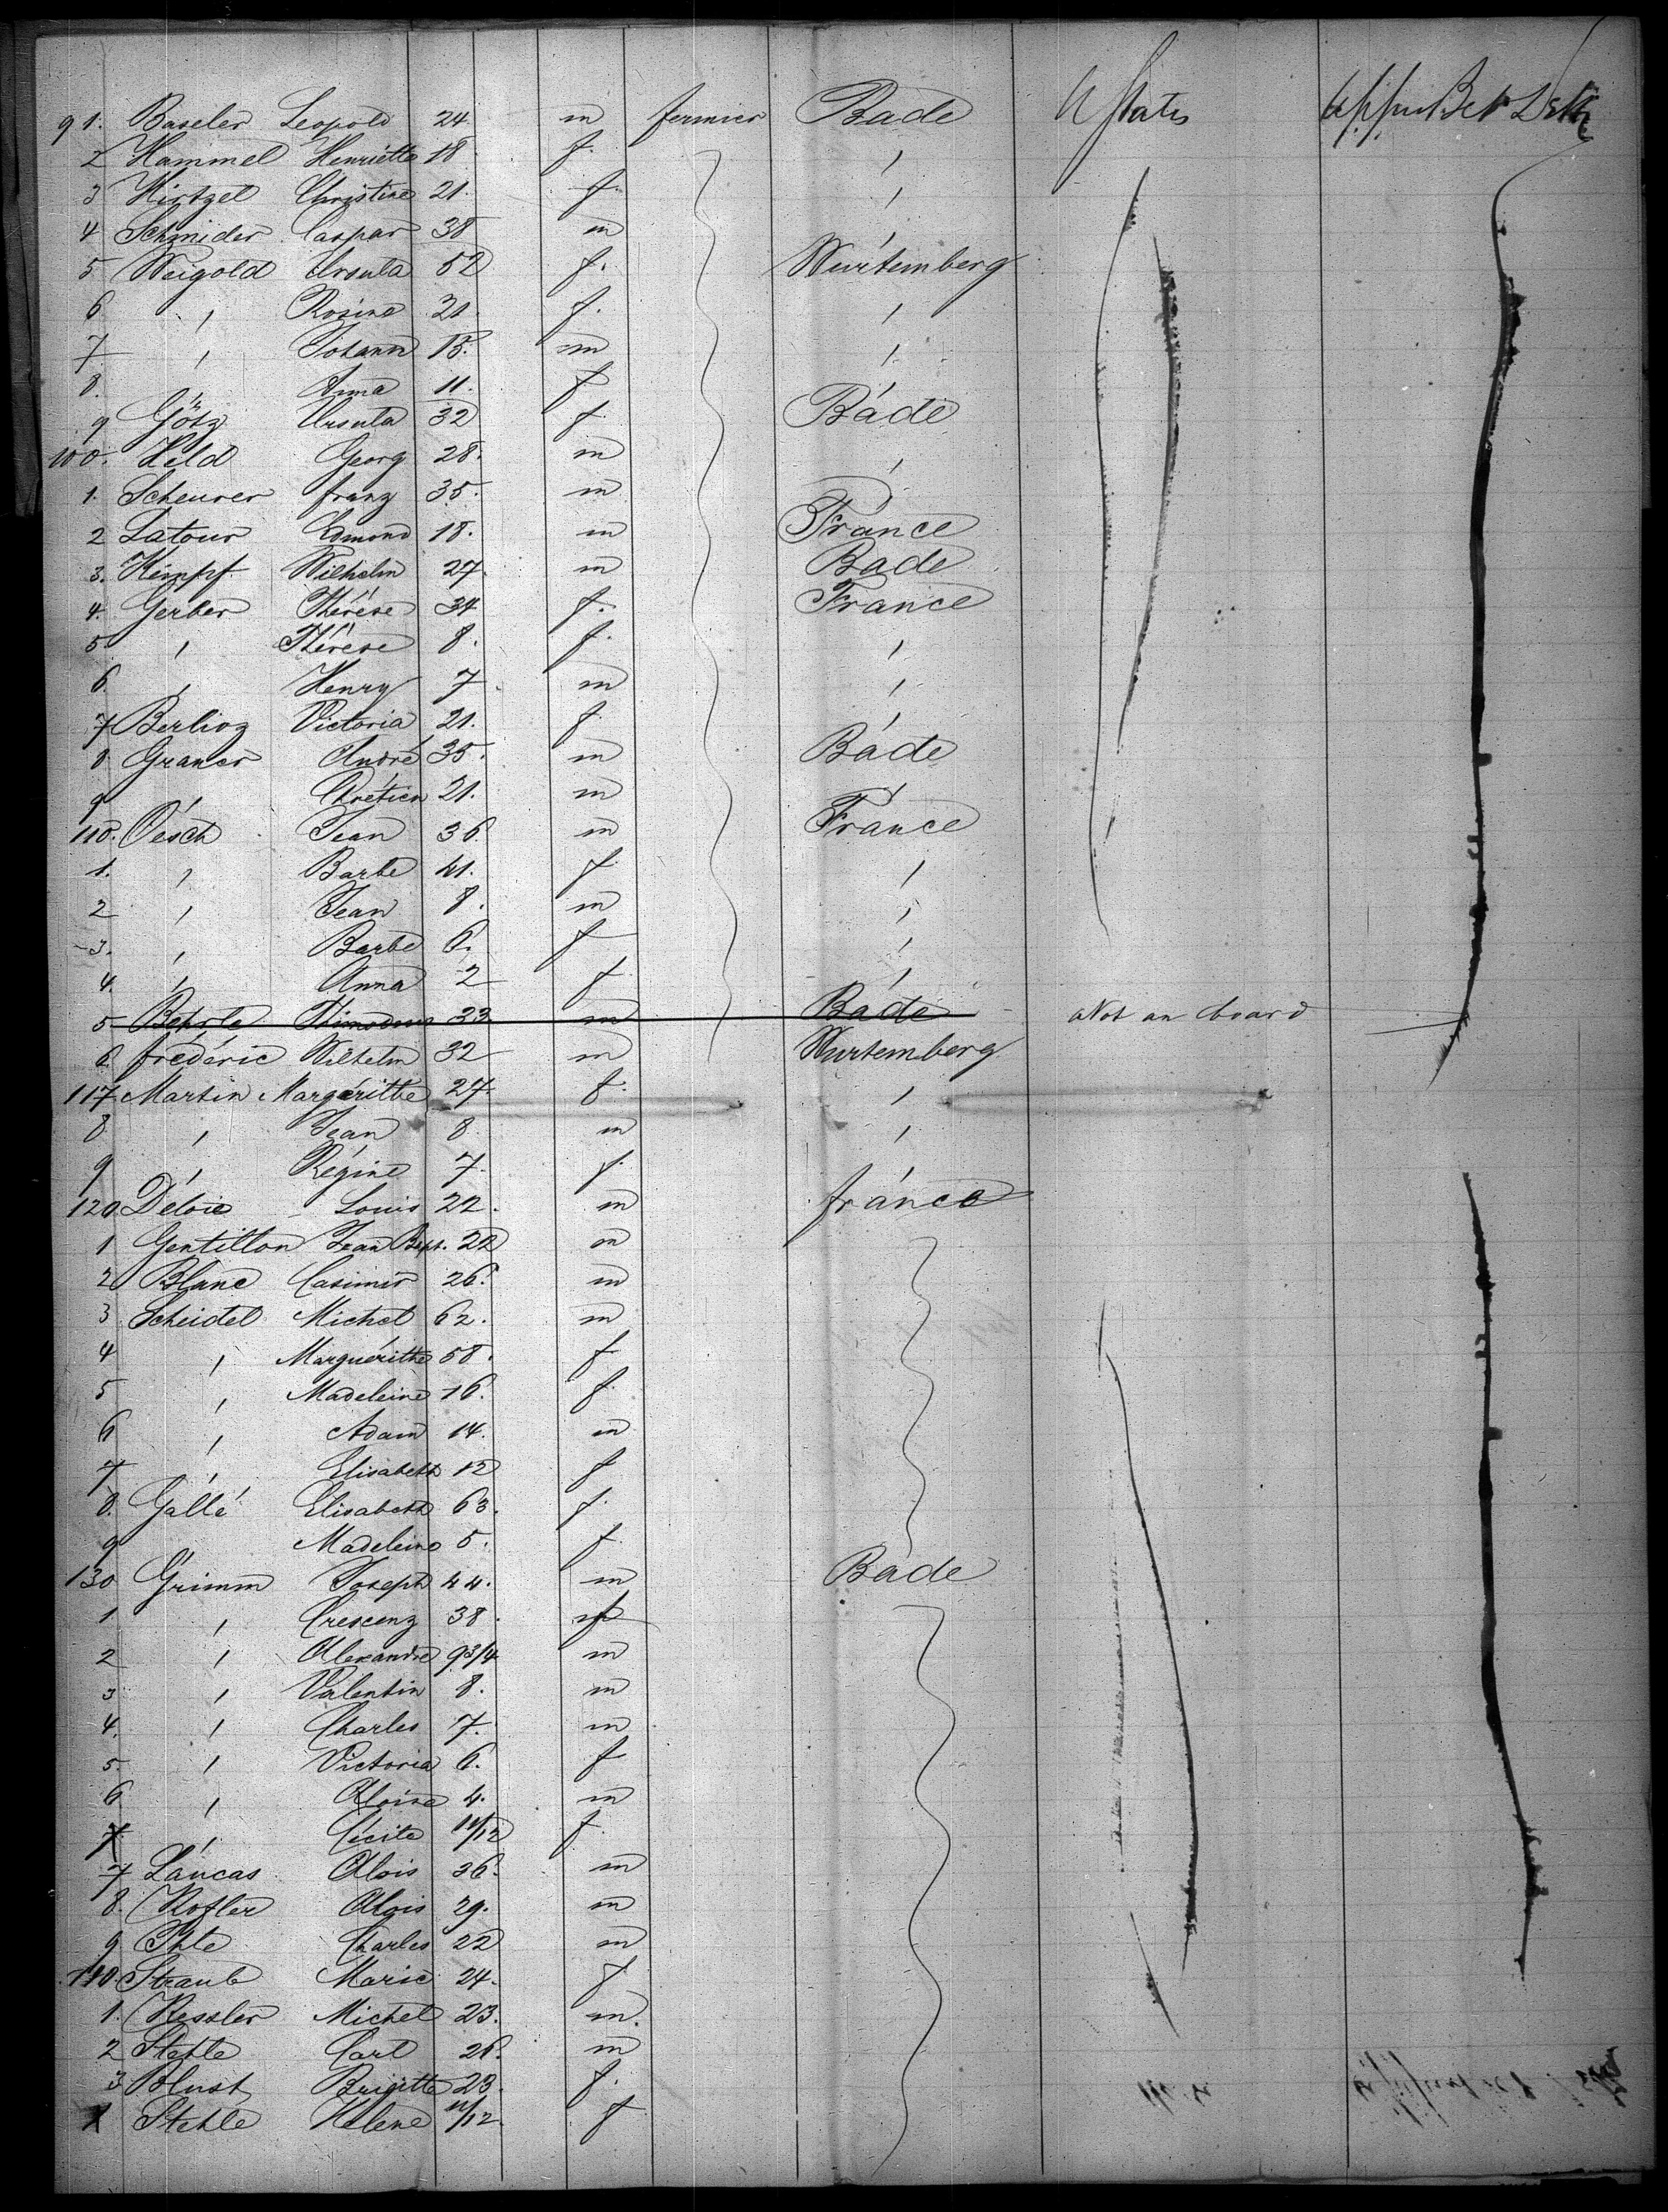 91. Baseler Leopold 24 m fermier Bade U States Upper Bet Deck
2 Hammel Henriette 18 f. "
3 Hirtzel Christine 21. f. "
4 Schnider Caspar 38 m "
5 Weigold Ursula 52 f. Wurtemberg
6 " Rosine 21. f. "
7 " Johann 15. m "
8. " Anna 11. f "
9 Götz Ursula 32 f Bade
100. Held Georg 28. m "
1. Scheurer franz 35. m "
2 Latour Edmond 18. m France
3. Kempf Wilhelm 27. m Bade
4. Gerber Thérèse 34 f. France
5 " Thérèse 8. f. "
6. " Henry 7. m "
7 Berlioz Victoria 21. f. "
8 Graner André 35. m Bade
9 " Chrétien 21. m "
110. Oesch Jean 36. m France
1. " Barbe 41. f. "
2 " Jean 8. m "
3. " Barbe 6. f "
4. " Anna 2 f "
5 Behrle 33 m Bade Not on board
6. frédéric Wilhelm 32 m Wurtemberg
117 Martin Margérithe 27. f. "
8 " Jean 8 m "
9 " Régine 7. f. "
120 Deloie Louis 22. m france
1 Gentillon Jean Bapt. 22 m
2 Blanc Casimir 26. m
3 Scheidel Michel 62. m
4 " Marguérithe 58. f
5 " Madeleine 16. f.
6 " Adam 14. m
7 " Elisabeth 12 f
8. Gallé Elisabeth 63. f.
9 " Madeleine 5. f.
130 Grimm Joseph 44. m Bade
1. " Crescenz 38. f
2 " Alexandre 9 3/4 m
3 " Valentin 8. m
4. " Charles 7. m
5. " Victoria 6. f
6 " Aloise 4. m
7 " Cécile 11/12 f.
7 Lancas Alois 36. m
8. Kofler Alois 29. m
9 Ihle Charles 22 m
140. Straub Marie 24. f
1. Kessler Michel 23. m.
2 Stehle Carl 26. m
3 Blust Brigitte 23. f.
Stehle Helene 11/12. f